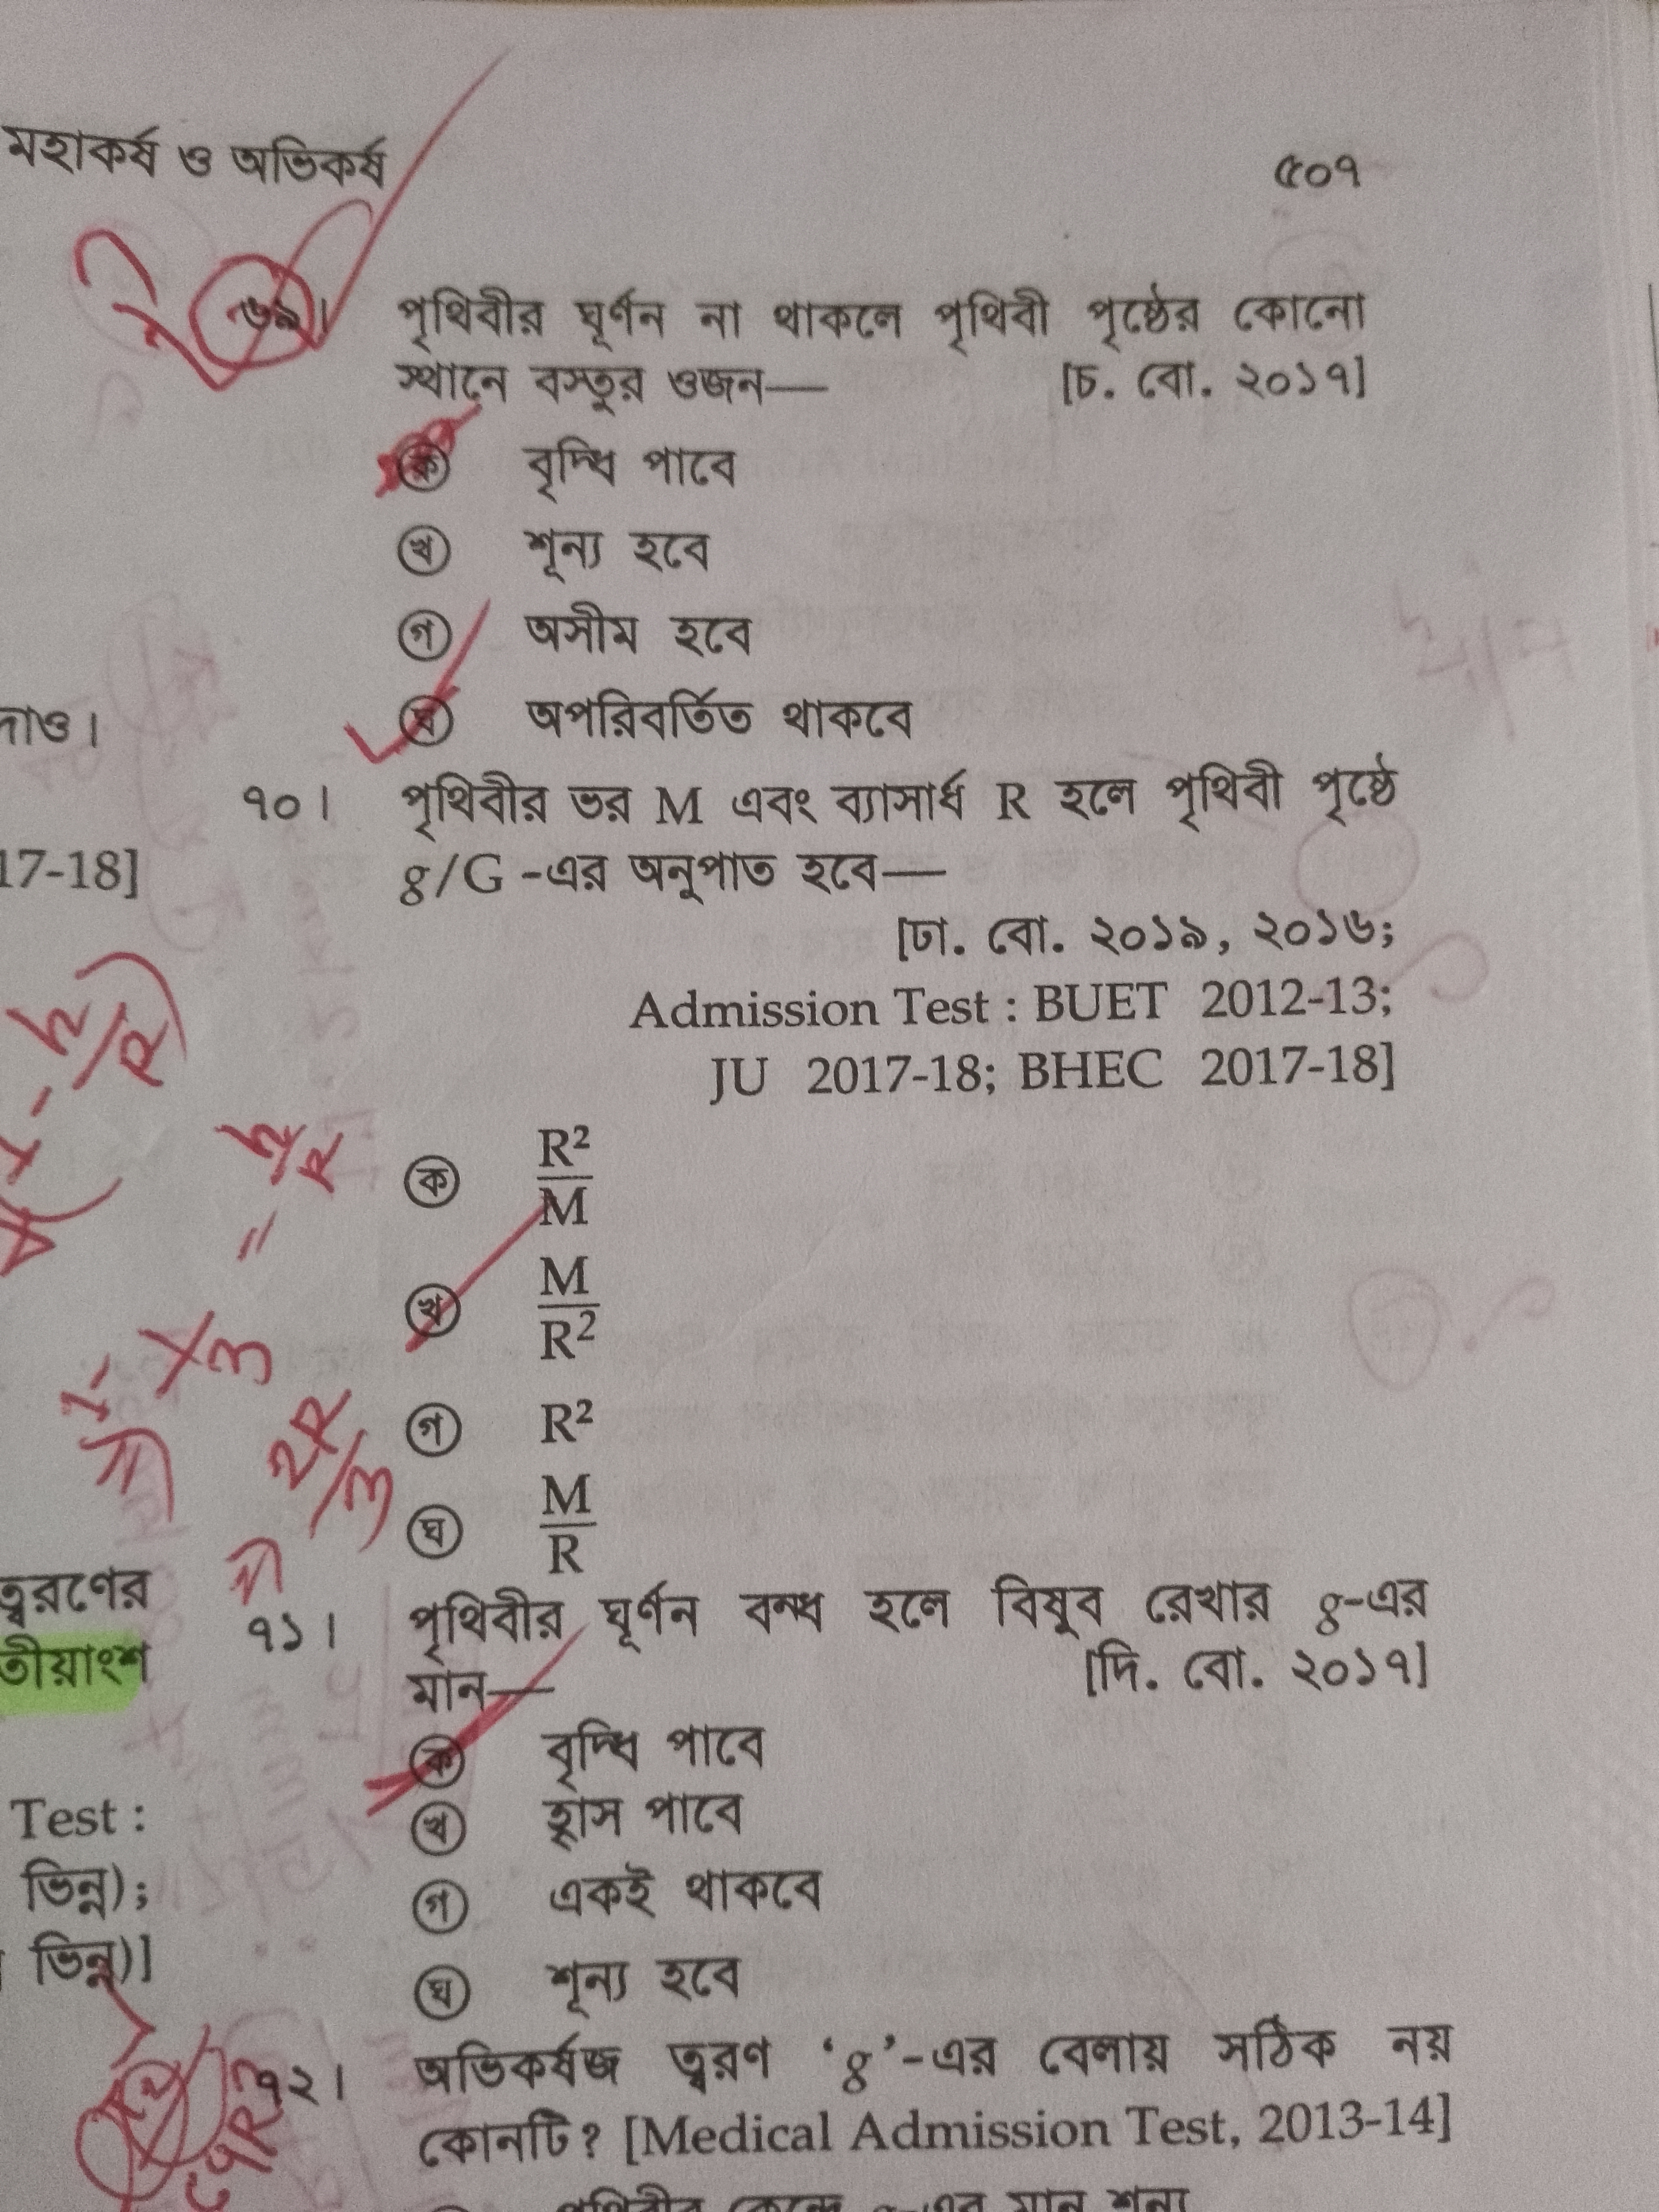 মহাকর্ষ ও অভিকর্ষ
৫০৭
৬৯।
পৃথিবীর ঘূর্ণন না থাকলে পৃথিবী পৃষ্ঠের কোনো
স্থানে বস্তুর ওজন—
[চ. বো. ২০১৭]
ক বৃদ্ধি পাবে
খ শূন্য হবে
গ অসীম হবে
ঘ অপরিবর্তিত থাকবে
দাও।
৭০। পৃথিবীর ভর M এবং ব্যাসার্ধ R হলে পৃথিবী পৃষ্ঠে
17-18]
g/G -এর অনুপাত হবে—
[ঢা. বো. ২০১৯, ২০১৬;
Admission Test : BUET 2012-13;
JU 2017-18; BHEC 2017-18]
ক R²/M
খ M/R²
গ R²
ঘ M/R
ত্বরণের
তীয়াংশ
৭১। পৃথিবীর ঘূর্ণন বন্ধ হলে বিষুব রেখার g-এর
মান—
[দি. বো. ২০১৭]
ক বৃদ্ধি পাবে
খ হ্রাস পাবে
গ একই থাকবে
ঘ শূন্য হবে
Test :
ভিন্ন);
ভিন্ন)]
৭২। অভিকর্ষজ ত্বরণ ‘g’-এর বেলায় সঠিক নয়
কোনটি? [Medical Admission Test, 2013-14]
পৃথিবীর কেন্দ্রে g-এর মান শূন্য